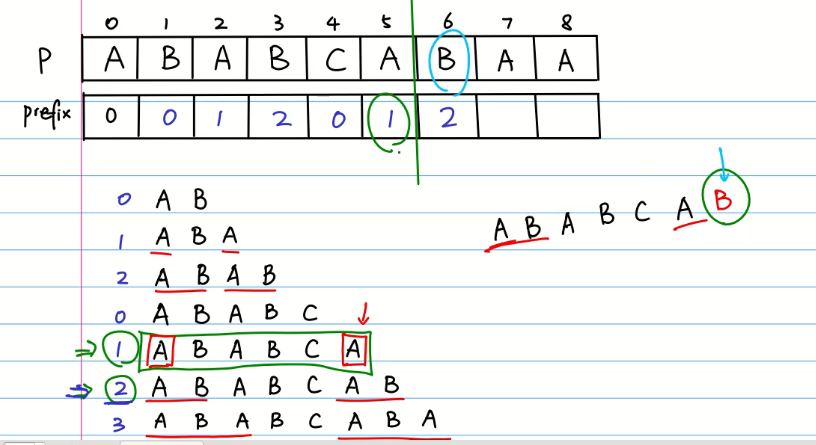 0 1 2 3 4 5 6 7 8
P A B A B C A B A A
prefix 0 0 1 2 0 1 2
0 A B
1 A B A
2 A B A B
0 A B A B C
⇒ 1 A B A B C A
⇒ 2 A B A B C A B
3 A B A B C A B A
A B A B C A B